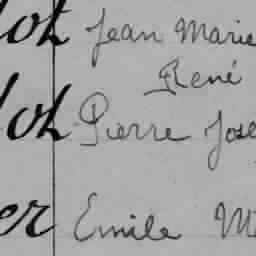 lot Jean Marie
René
lot Pierre Jose
er Emile M